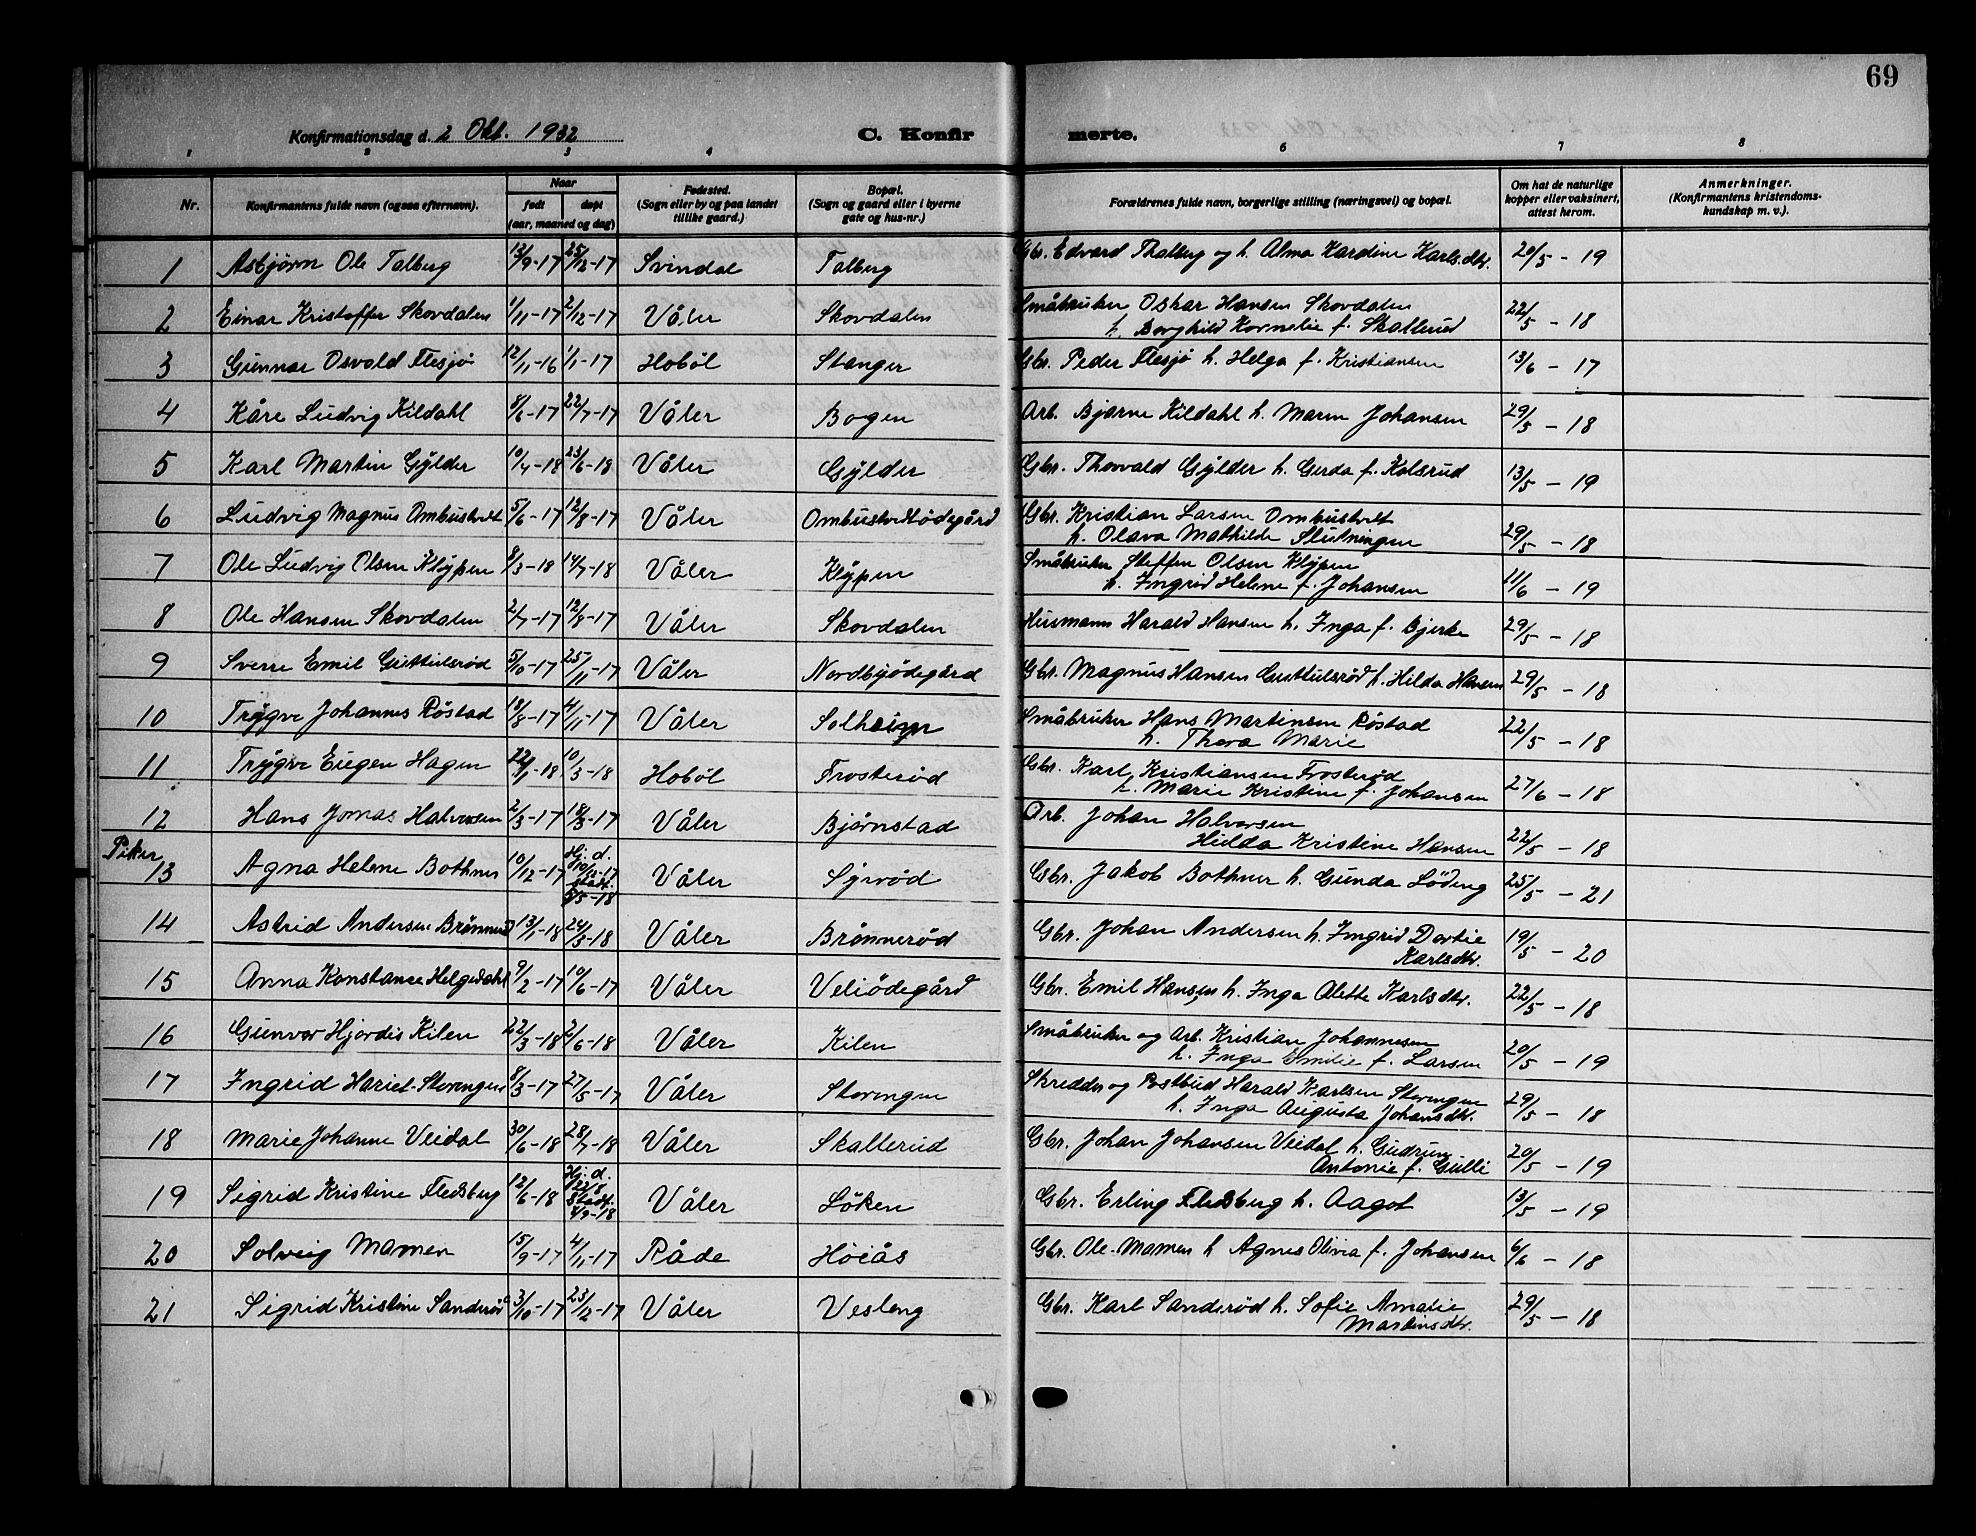 69
Konfirmationsdag d. 2 Okt. 1932 C. Konfir merte.
1 2 3 4 6 7 8
Nr. Konfirmantens fulde navn (ogsaa efternavn). Naar født døpt (aar, maaned og dag) Fødested. (Sogn eller by og paa landet tillike gaard.) Bopæl. (Sogn og gaard eller i byerne gate og hus-nr.) Forældrenes fulde navn, borgerlige stilling (næringsvei) og bopæl. Om hat de naturlige kopper eller vaksinert, attest herom. Anmerkninger. (Konfirmantens kristendoms-kundskap m. v.).
1 Asbjørn Ole Talberg 13/9-17 25/12-17 Svindal Talberg Gbr. Edvard Thalberg og h. Alma Kardine Karlsdtr. 20/5 - 19
2 Einar Kristoffer Skovdalen 1/11-17 2/12-17 Våler Skovdalen Småbruker Oskar Hansen Skovdalen
h. Borghild Kornelie f. Skallerud 22/5 - 18
3 Gunnar Osvald Flesjø 12/11-16 1/1-17 Hobøl Stanger Gbr. Peder Flesjø h. Helga f. Kristiansen 13/6 - 17
4 Kåre Ludvig Kildahl 8/6-17 22/7-17 Våler Bogen Arb. Bjarne Kildahl h. Maren Johansen 29/5 - 18
5 Karl Martin Gylder 10/4-18 23/6-18 Våler Gylder Gbr. Thorvald Gylder h. Gerda f. Kolsrud 13/5 - 19
6 Ludvig Magnus Ombustvet 5/6-17 12/8-17 Våler Ombustvedtødegård Gbr. Kristian Larsen Ombustvet
h. Olava Mathilde Slutningen 29/5 - 18
7 Ole Ludvig Olsen Klypen 8/3-18 14/7-18 Våler Klypen Småbruker Steffen Olsen Klypen
h. Ingrid Helene f. Johansen 11/6 - 19
8 Ole Hansen Skovdalen 2/7-17 12/8-17 Våler Skovdalen Husmann Harald Hansen h. Inga f. Bjerke 29/5 - 18
9 Sverre Emil Guttulsrød 5/10-17 25/11-17 Våler Nordbyødegård Gbr. Magnus Hansen Guttulsrød h. Hilda Hansen 29/5 - 18
10 Trygve Johannes Røstad 18/8-17 4/11-17 Våler Solheim Småbruker Hans Martinsen Røstad
h. Thora Marie 22/5 - 18
11 Trygve Eugen Hagen 22/1-18 10/3-18 Hobøl Frosterød Gbr. Karl Kristiansen Frosterød
h. Marie Kristine f. Johansen 27/6 - 18
12 Hans Jonas Halvorsen 2/3-17 18/3-17 Våler Bjørnstad Arb. Johan Halvorsen
Hulda Kristine Hansen 22/5 - 18
Piker
13 Agna Helene Bothner 10/12-17 Hj. d. 10/12-17 stadf. 5/5-18 Våler Syrød Gbr. Jakob Bothner h. Gunda Løding 25/5 - 21
14 Astrid Andersen Brønnerød 13/1-18 24/3-18 Våler Brønnerød Gbr. Johan Andersen h. Ingrid Dortie
Karlsdtr. 19/5 - 20
15 Anna Konstance Helgedahl 9/2-17 10/6-17 Våler Veliødegård Gbr. Emil Hansen h. Inga Alette Karlsdtr. 22/5 - 18
16 Gunvor Hjørdis Kilen 22/3-18 2/6-18 Våler Kilen Småbruker og Arb. Kristian Johannesen
h. Inga Emilie f. Larsen 20/5 - 19
17 Ingrid Hariet Storengen 8/3-17 27/5-17 Våler Storengen Skredder og Postbud Harald Karlsen Storengen
h. Inga Augusta Johansdtr. 29/5 - 18
18 Marie Johanne Veidal 30/6-18 28/7-18 Våler Skallerud Gbr. Johan Johansen Veidal h. Gudrun
Antonie f. Gulli 20/5 - 19
19 Sigrid Kristine Flesberg 12/6-18 Hj. d. 22/8 Stadf. 8/9-18 Våler Løken Gbr. Erling Flesberg h. Aagot 13/5 - 19
20 Solveig Mamen 15/9-17 4/11-17 Råde Høiås Gbr. Ole Mamen h Agnes Olivia f. Johansen 6/6 - 18
21 Sigrid Kristine Sanderød 3/10-17 23/12-17 Våler Vesleng Gbr. Karl Sanderød h. Sofie Amalie
Martinsdtr. 29/5 - 18